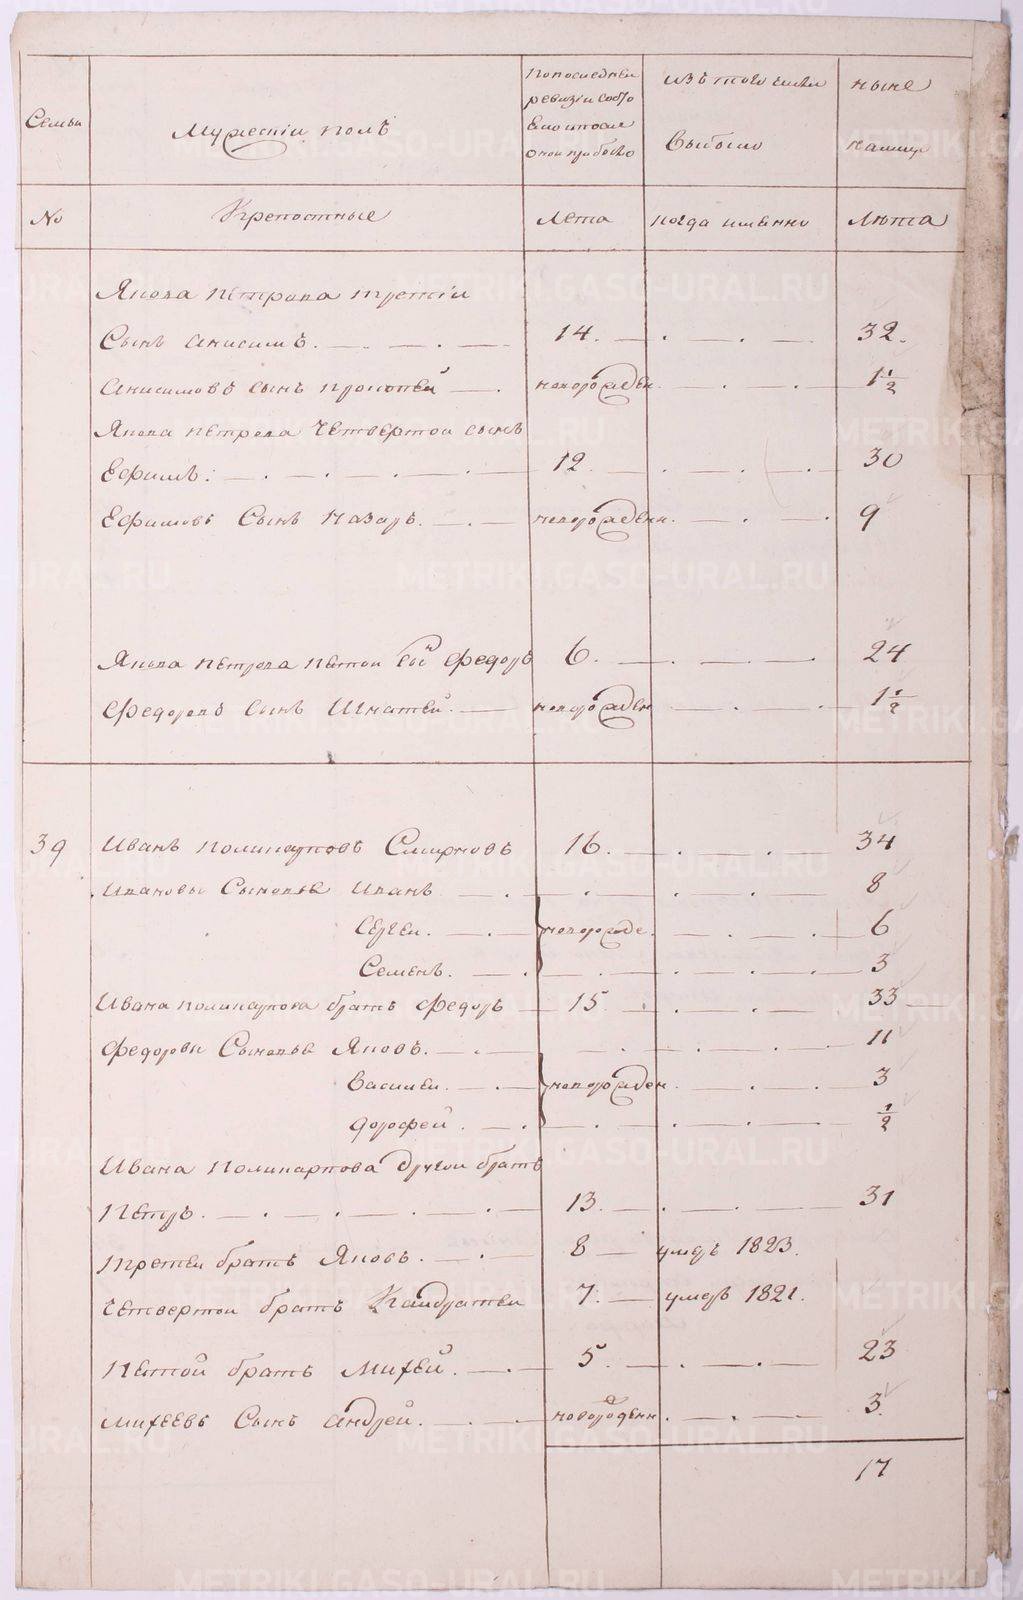 Семьи
Мужескiй полъ
По последней
ревизiи состо
яло и после
оной прибыло
изъ того числа
выбыло
ныне
налице
№
Крепостные
Лета
когда именно
Лѣта
Якова Петрова третiи
Сынъ Анисимъ. 14. 32.
Анисимовъ сынъ Прокопей новорожден. 1 1/2
Якова Петрова четвертой сынъ
Ефимъ: 12 30
Ефимовъ Сынъ Назаръ. новорожденн. 9
Якова Петрова пятой сы Федоръ 6. 24
Федоровъ сынъ Игнатей. новорожден 1 1/2
39 Иванъ Поликарповъ Смирновъ 16. 34
Ивановы Сыновья Иванъ 8
Сергеи. новорожде. 6
Семенъ. 3
Ивана Поликарпова братъ Федоръ 15 33
Федоровы Сыновья Яковъ. 11
Василеи. новорожден. 3
Дорофей. 1/2
Ивана Поликарпова другои братъ
Петръ. 13. 31
третеи братъ Яковъ. 8 умеръ 1823.
Четвертои братъ Кондратеи 7. умеръ 1821.
Пятой братъ Михей. 5. 23
Михеевъ Сынъ Андрей. новорожденн. 3.
17
METRIKI.GASO-URAL.RU